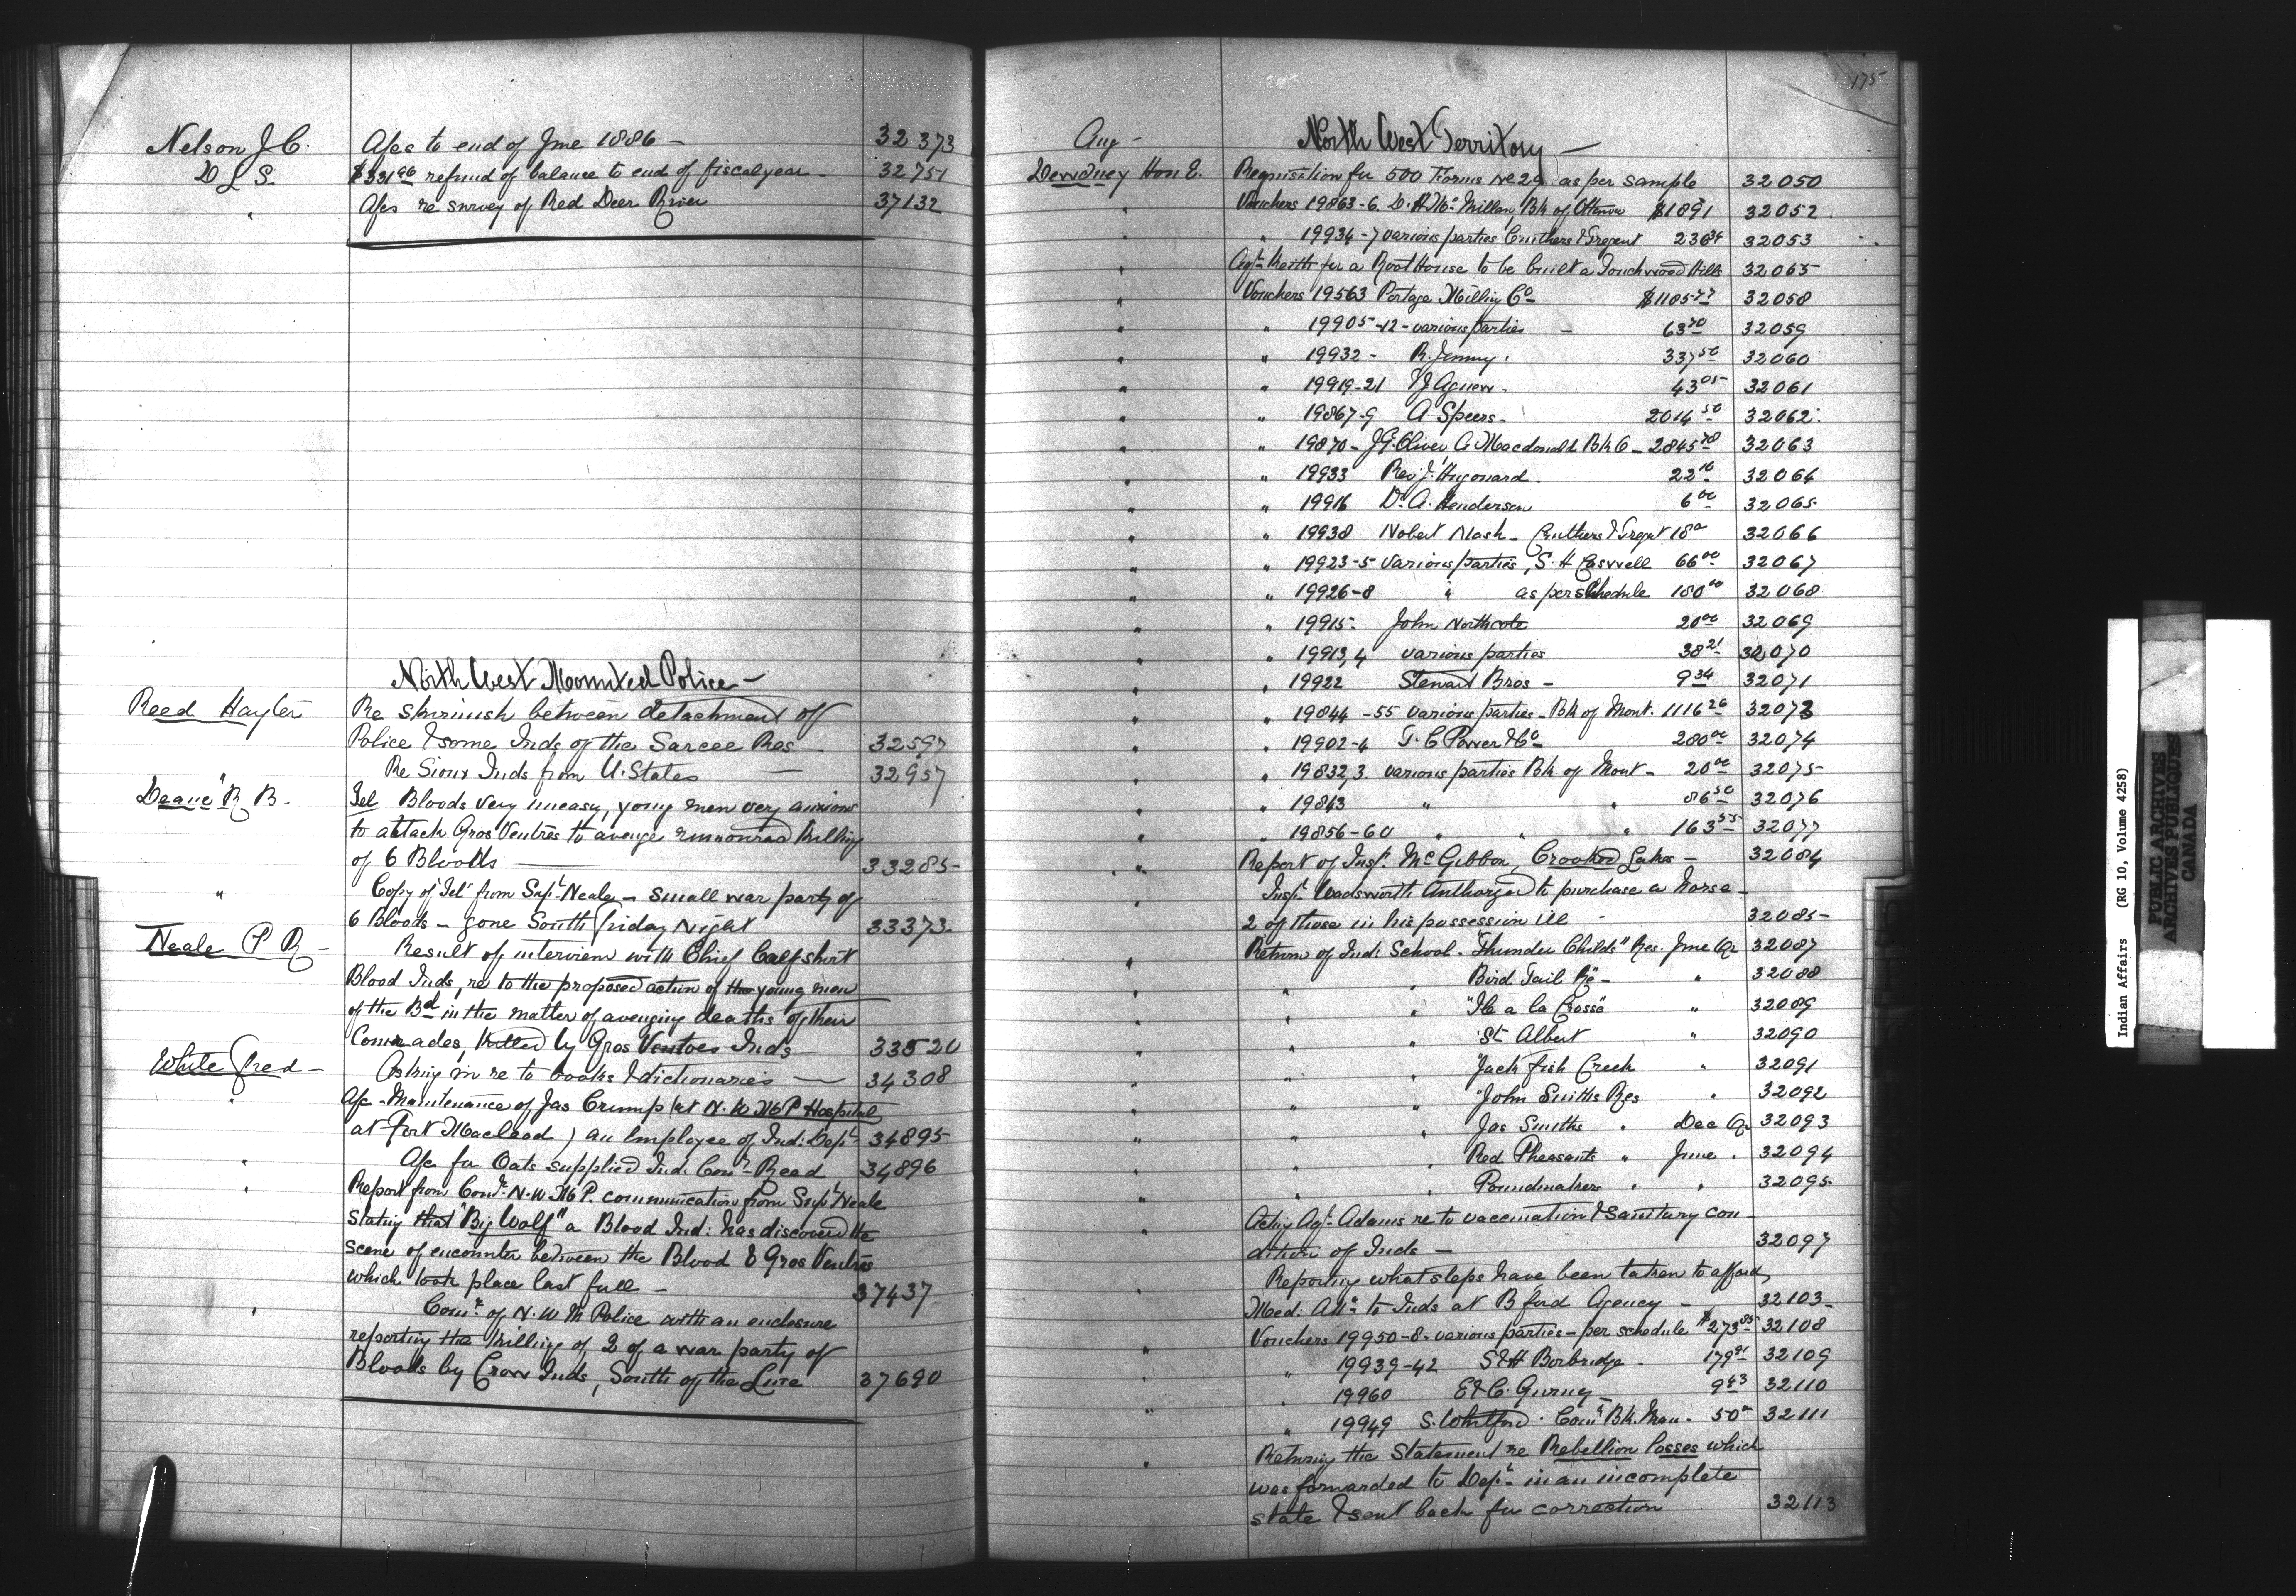 Nelson J. C. A/cs to end of June 1886 — 32373
D L S. $331.96 refund of balance to end of fiscal year — 32751
" A/cs re survey of Red Deer River 37132
North West Mounted Police —
Reed Hayter Re skirmish between detachment of
Police & some Inds of the Sarcee Res — 32597
" Re Sioux Inds from U. States — 32957
Deane R. B. Tel Bloods very uneasy, young men very anxious
to attack Gros Ventres to avenge rumoured killing
of 6 Bloods — 33285
" Copy of Tel from Supt Neale — small war party of
6 Bloods — gone South Friday Night 33373
Neale P R — Result of interview with Chief Calf shirt
Blood Inds, re to the proposed action of the young men
of the Bd in the matter of avenging deaths of their
Comrades, killed by Gros Ventres Inds 33520
White Fred — Asking in re to books & dictionaries — 34308
" A/c - Maintenance of Jas Crump (at N. W M P Hospital
at Fort Macleod) an Employee of Ind: Dept 34895
" A/c for Oats supplied Ind. Comr Reed 34896
" Report from Comr. N. W M P. communication from Supt Neale
stating that "Big Wolf" a Blood Ind: has discovered the
scene of encounter between the Blood & Gros Ventres
which took place last fall — 37437
" Comr. of N. W M Police with an enclosure
reporting the killing of 2 of a war party of
Bloods by Crow Inds, South of the Line 37690
175
Aug — North West Territory —
Dewdney Hon E. Requisition for 500 Forms No 29 as per sample 32050
" Vouchers 19863-6. D. H. McMillan, Bk of Ottawa $1891 32052
" " 19934-7 various parties Cruthers & Tregent 236 34 32053
" Agt Keith for a Root House to be built a Touchwood Hills 32055
" Vouchers 19563 Portage Milling Co — $1185 77 32058
" " 19905-12 - various parties — 63 70 32059
" " 19932 - R. Jenny. 337 50 32060
" " 19919-21 Agnew. 43 05 32061
" " 19867-9 A Speers — 2014 50 32062
" " 19870 - J. G. Oliver, A Macdonald Bk O — 2845 78 32063
" " 19933 Rev J. Hugonard. 22 10 32064
" " 19916 Dr. A. Henderson 6 00 32065
" " 19938 Nobert Nash — Cruthers & Tregent 18 00 32066
" " 19923-5 various parties, S. H Caswell 66 00 32067
" " 19926-8 " as per schedule 180 00 32068
" " 19915 - John Northcote 20 00 32069
" " 19913,4 various parties 38 21 32070
" " 19922 Stewart Bros — 9 34 32071
" " 19844-55 various parties - Bk of Mont. 1116 26 32073
" " 19902-4 T. C Power & Co 280 00 32074
" " 19832,3 various parties Bk of Mont — 20 00 32075
" " 19843 " " 86 50 32076
" " 19856-60 " " " 163 55 32077
" " Report of Inspr McGibbon, Crooked Lakes — 32084
" Inspr Wadsworth Authorized to purchase a horse
2 of those in his possession ill — 32085
" Return of Ind: School - "Thunder Childs" Res. June Qr 32087
" " " Bird Tail Re — " 32088
" " " "Ile a la Crosse" " 32089
" " " "St Albert " 32090
" " " "Jack fish Creek " 32091
" " " "John Smiths Res " 32092
" " " Jas Smiths " Dec Qr 32093
" " " Red Pheasants " June " 32094
" " " Poundmakers " " 32095
" Actg Agt. Adams re to vaccination & sanitary con-
dition of Inds — 32097
" Reporting what steps have been taken to afford
Med: Attn to Inds at B ford Agency — 32103
" Vouchers 19950-8 - various parties - per schedule $273 85 32108
" " 19939-42 S & H Borbridge — 179 91 32109
" " 19960 E & C. Gurney 9 43 32110
" " 19949 S. Whitford. Coml Bk. Man — 50 00 32111
" Returning the Statement re Rebellion losses which
was forwarded to Dept in an incomplete
state & sent back for correction 32113
Indian Affairs (RG 10, Volume 4258)
PUBLIC ARCHIVES
ARCHIVES PUBLIQUES
CANADA